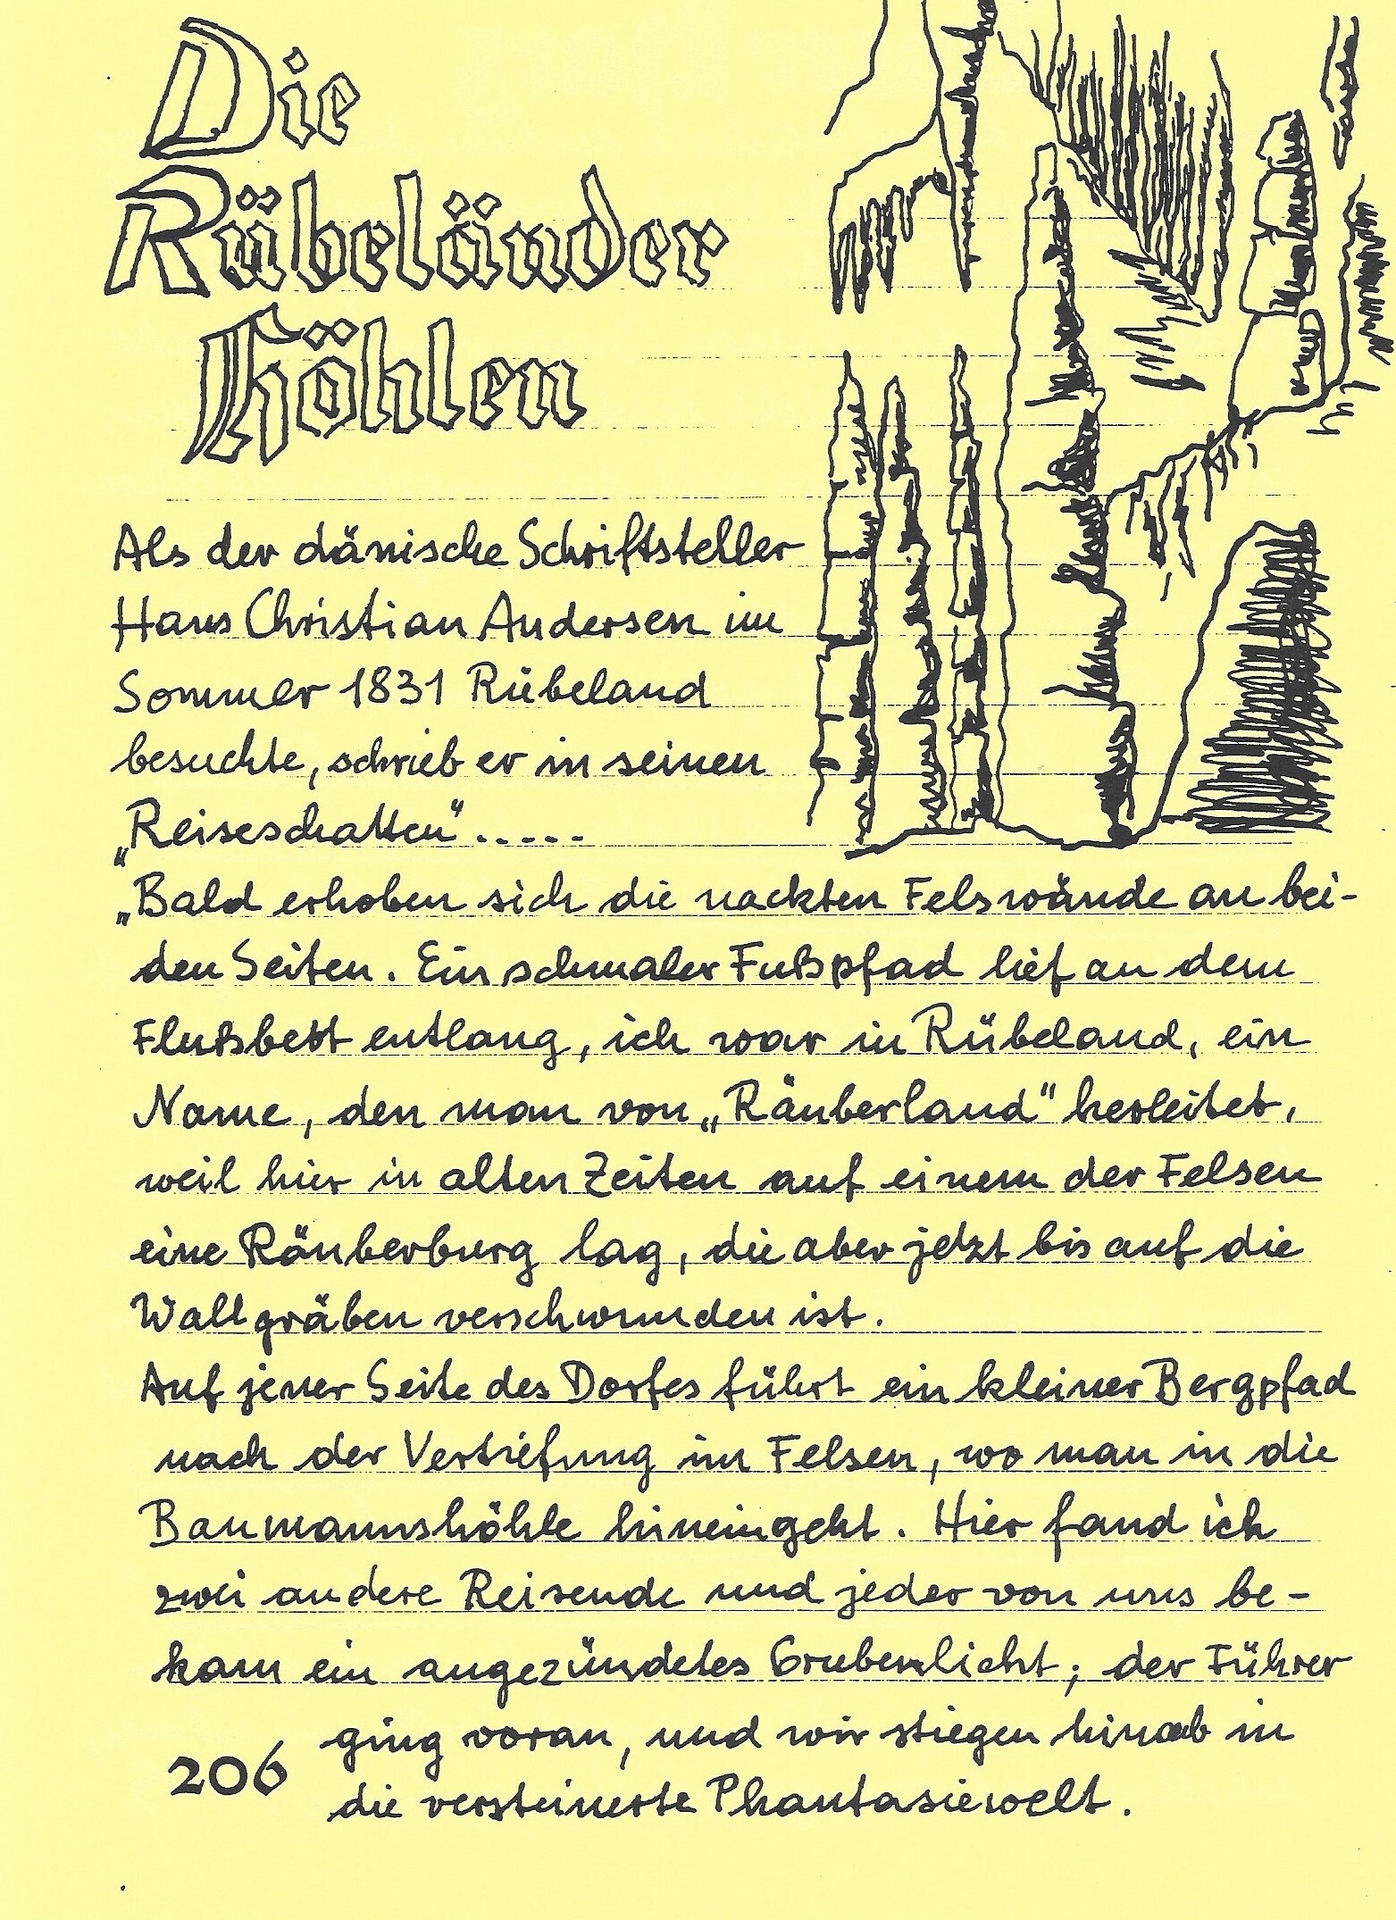 Die
Rübeländer
Höhlen
Als der dänische Schriftsteller
Hans Christian Andersen im
Sommer 1831 Rübeland
besuchte, schrieb er in seinen
„Reiseschatten".....
„Bald erhoben sich die nackten Felswände an bei-
den Seiten. Ein schmaler Fußpfad lief an dem
Flußbett entlang, ich war in Rübeland, ein
Name, den man von „Räuberland" herleitet,
weil hier in alten Zeiten auf einem der Felsen
eine Räuberburg lag, die aber jetzt bis auf die
Wallgräben verschwunden ist.
Auf jener Seite des Dorfes führt ein kleiner Bergpfad
nach der Vertiefung im Felsen, wo man in die
Baumannshöhle hineingeht. Hier fand ich
zwei andere Reisende und jeder von uns be-
kam ein angezündetes Grubenlicht; der Führer
ging voran, und wir stiegen hinab in
die versteinerte Phantasiewelt.
206